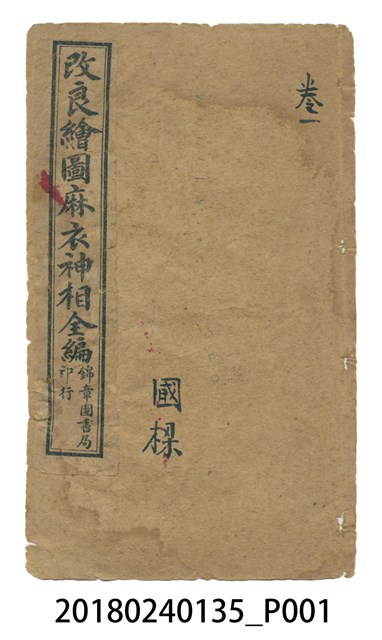 卷一
改良繪圖麻衣神相全編
錦章圖書局
印行
國樑
20180240135_P001